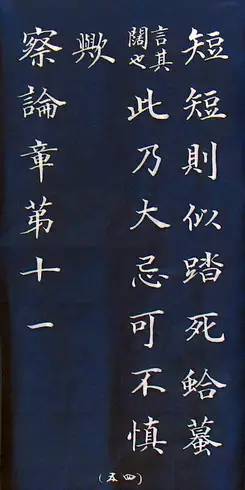 短短則似踏死蛤蟇
言其闊也此乃大忌可不慎
歟
察論章苐十一
(五四)